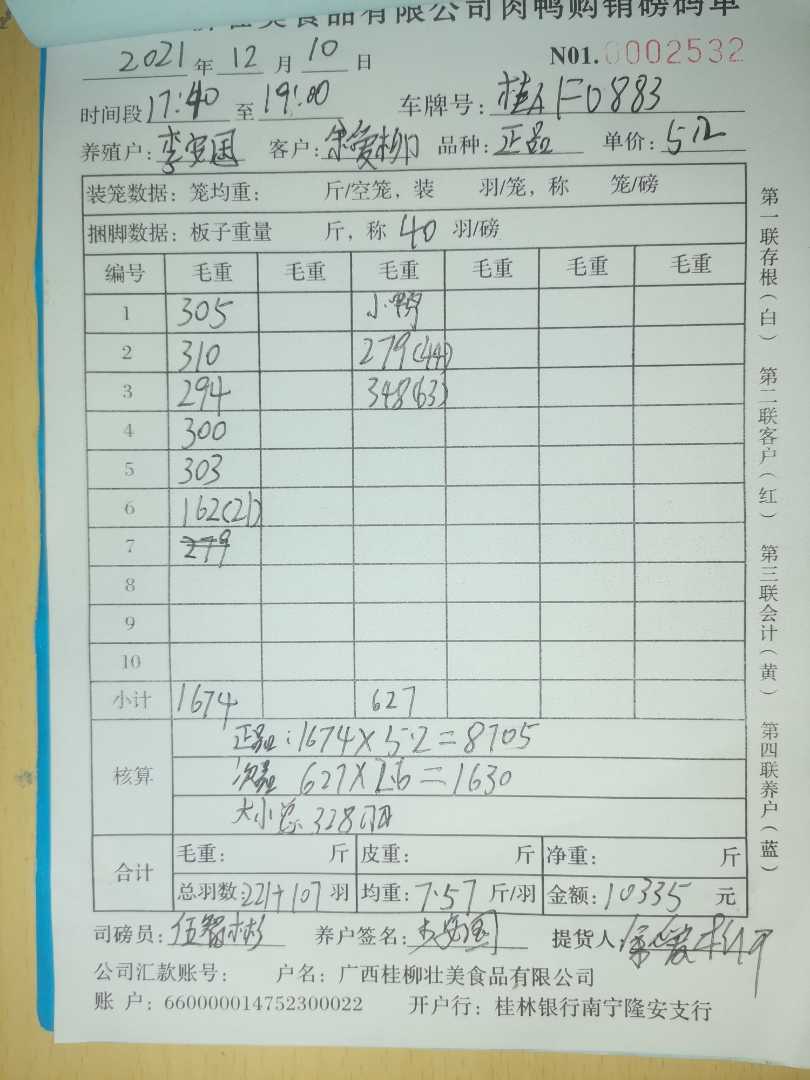 壮美食品有限公司肉鸭购销磅码单
2021 年 12 月 10 日 N01. 0002532
时间段 17:40 至 19:00 车牌号: 桂AF0883
养殖户: 李安国 客户: 余爱柳 品种: 正品 单价: 5.2
装笼数据: 笼均重: 斤/空笼, 装 羽/笼, 称 笼/磅
捆脚数据: 板子重量 斤, 称 40 羽/磅
编号 毛重 毛重 毛重 毛重 毛重 毛重
1 305 小鸭
2 310 279(44)
3 294 348(63)
4 300
5 303
6 162(21)
7 279
8
9
10
小计 1674 627
核算
正品: 1674×5.2=8705
次品 627×2.6=1630
大小总 328羽
合计
毛重: 斤 皮重: 斤 净重: 斤
总羽数: 221+107 羽 均重: 7.57 斤/羽 金额: 10335 元
司磅员: 伍智彬 养户签名: 李安国 提货人: 余爱柳
公司汇款账号: 户名: 广西桂柳壮美食品有限公司
账 户: 660000014752300022 开户行: 桂林银行南宁隆安支行
第一联存根(白) 第二联客户(红) 第三联会计(黄) 第四联养户(蓝)